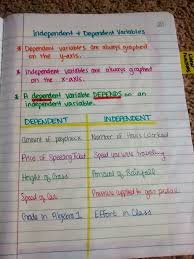 Independent + Dependent Variables
* Dependent variables are always graphed
on the y-axis.
* Independent variables are always graphed
on the x-axis.
* A dependent variable DEPENDS on an
independent variable.
DEPENDENT INDEPENDENT
Amount of paycheck Number of Hours Worked
Price of Speeding Ticket Speed you were traveling
Height of Grass Amount of Rainfall
Speed of Car Pressure applied to gas pedal
Grade in Algebra 1 Effort in Class